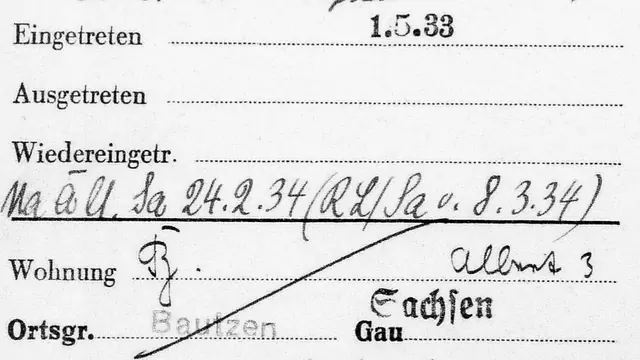 Eingetreten 1.5.33
Ausgetreten
Wiedereingetr.
24.2.34 (RL/Sa v. 8.3.34)
Wohnung Bz. Albert 3
Ortsgr. Bautzen Gau Sachsen